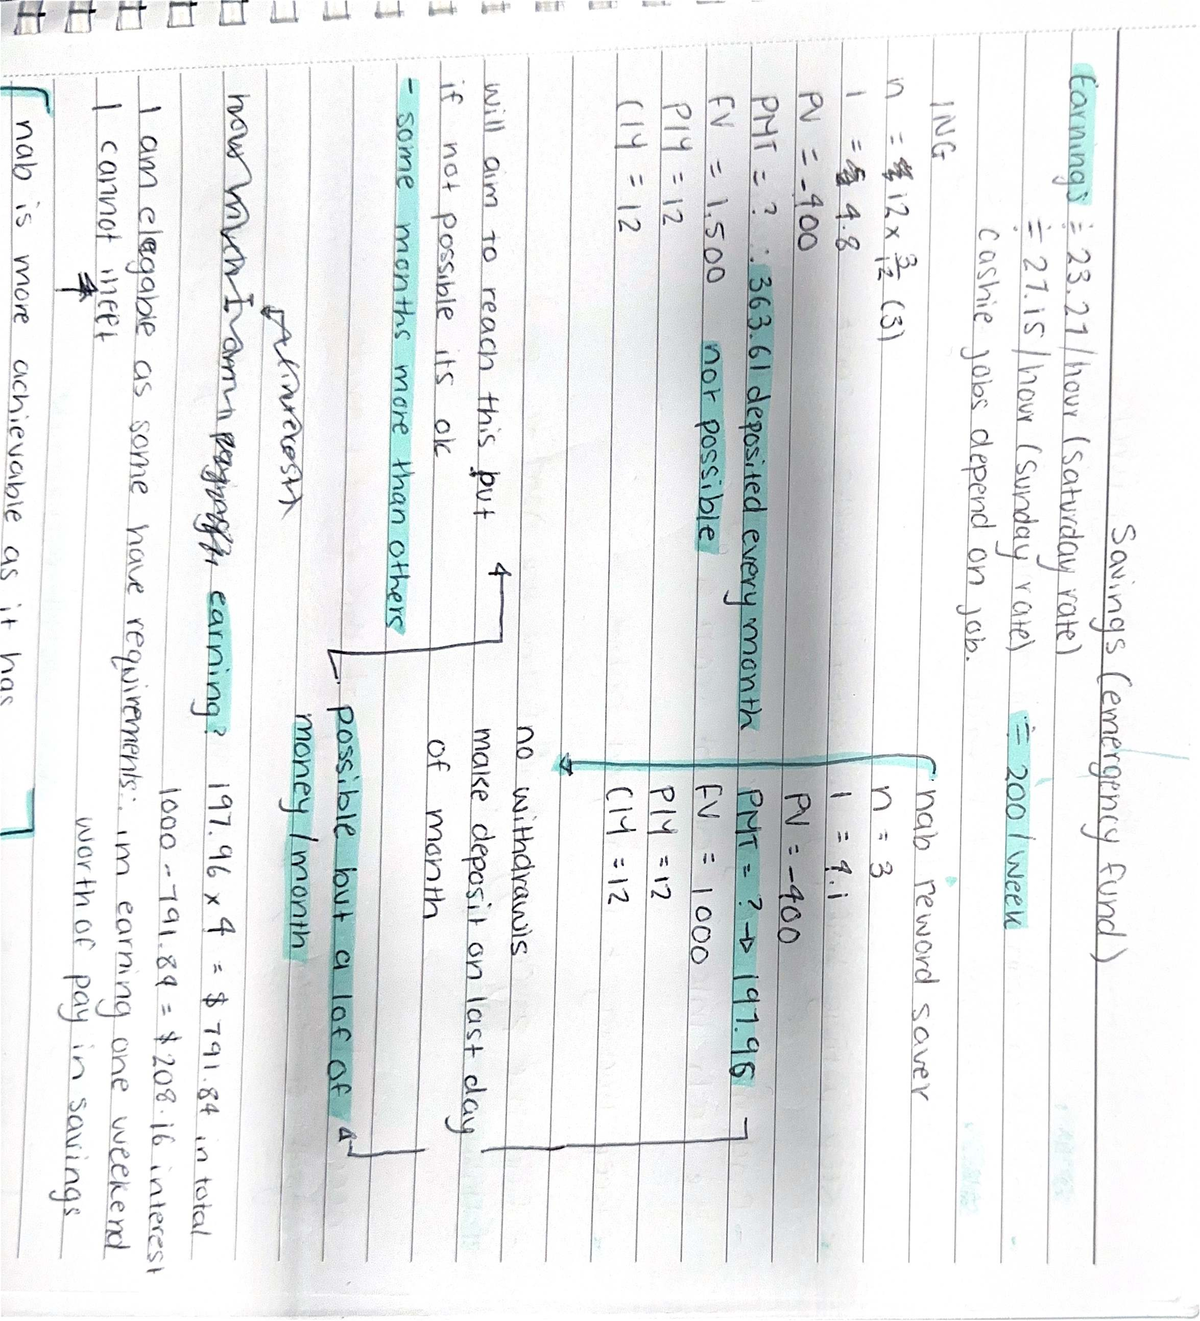 Savings (emergency fund)
Earnings ≑ 23.27/hour (Saturday rate)
≑ 27.15/hour (Sunday rate) ≑ 200/week
cashie jobs depend on job.
ING
n = 12 x 3/12 (3)
I = 4.8
PV = -400
PMT = ? ∴ 363.61 deposited every month
FV = 1,500 not possible
P/Y = 12
C/Y = 12
will aim to reach this but
if not possible its ok
- some months more than others
nab reword saver
n = 3
I = 4.1
PV = -400
PMT = ? → 197.96
FV = 1000
P/Y = 12
C/Y = 12
no withdrawls
make deposit on last day
of month
possible but a lot of
money/month
how much I am earning? 197.96 x 4 = $791.84 in total
1000 - 791.84 = $208.16 interest
I am elegable as some have requirements: im earning one weekend
I cannot meet worth of pay in savings
nab is more achievable as it has